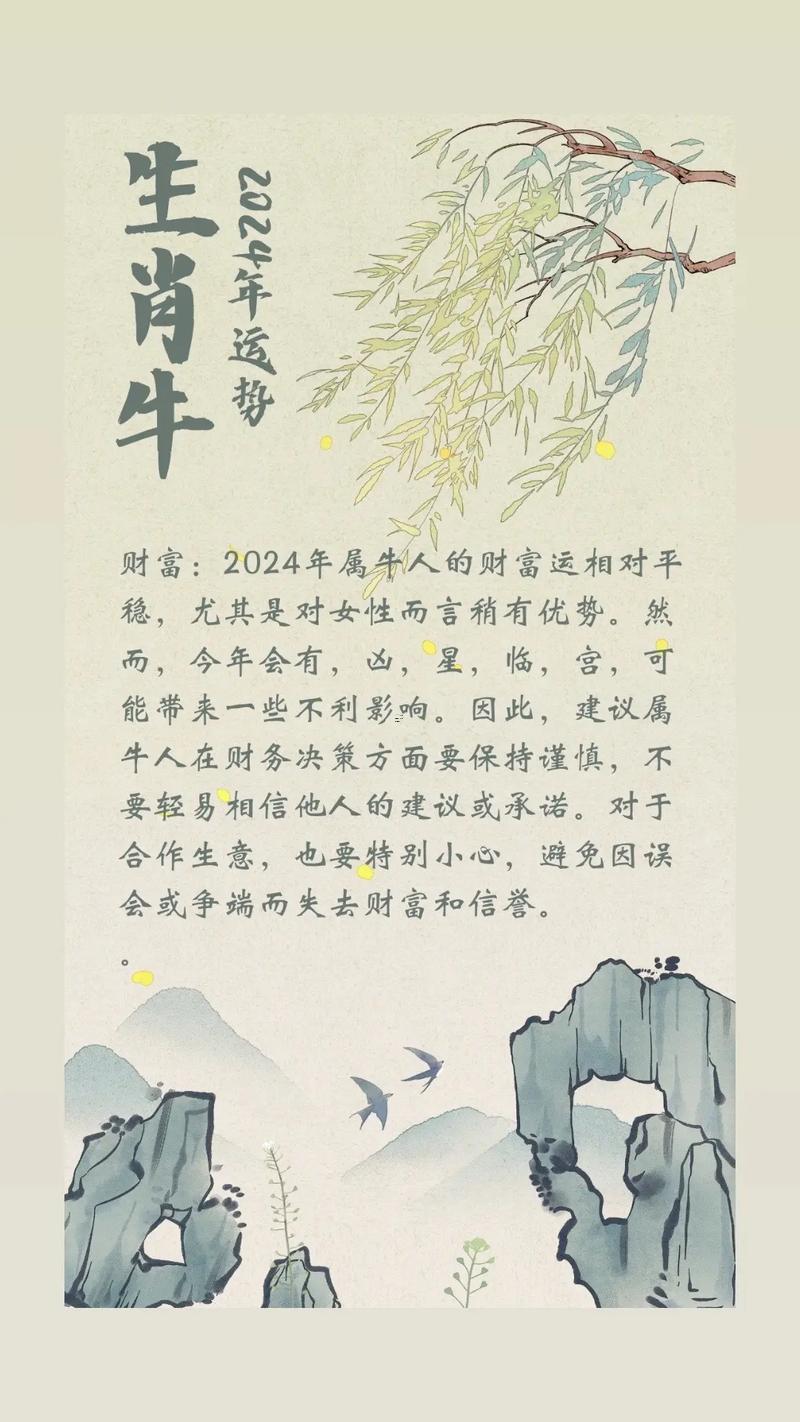 生肖牛
2024年运势
财富：2024年属牛人的财富运相对平
稳，尤其是对女性而言稍有优势。然
而，今年会有，凶，星，临，宫，可
能带来一些不利影响。因此，建议属
牛人在财务决策方面要保持谨慎，不
要轻易相信他人的建议或承诺。对于
合作生意，也要特别小心，避免因误
会或争端而失去财富和信誉。
。